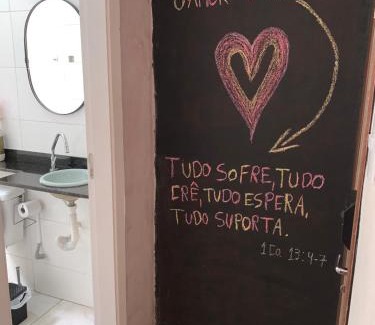 TUDO SOFRE, TUDO
CRÊ, TUDO ESPERA,
TUDO SUPORTA.
1Co 13:4-7